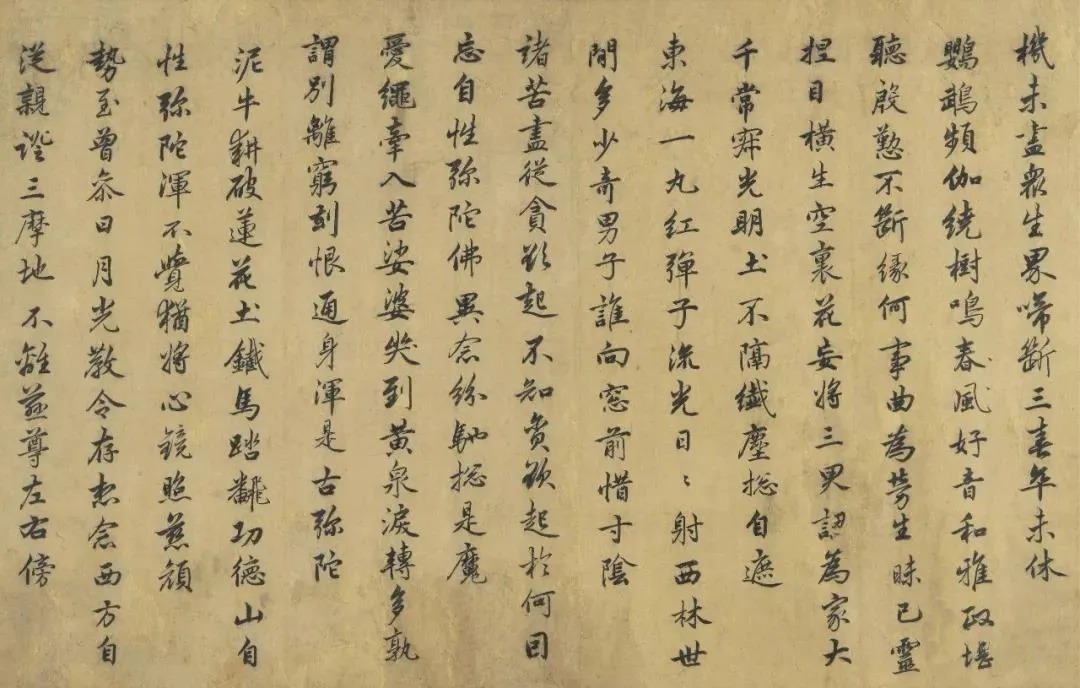 機未盡衆生界啼斷三春年未休
鸚鵡頻伽繞樹鳴春風好音和雅政堪
聽殷懃不斷緣何事曲為勞生昧已靈
捏目橫生空裏花妄將三界認為家大
千常寂光明土不隔纖塵捴自遮
東海一丸紅彈子流光日〻射西林世
間多少奇男子誰向窓前惜寸陰
諸苦盡從貪欲起不知貪欲起於何因
忘自性弥陀佛異念紛馳捴是魔
愛繩牽入苦娑婆哭到黃泉淚轉多孰
謂別離窮到恨通身渾是古弥陀
泥牛耕破蓮花土鐵馬踏翻功德山自
性弥陀渾不覺猶將心鏡照慈顔
勢至曾叅日月光教令存想念西方自
從親證三摩地不離慈尊左右傍